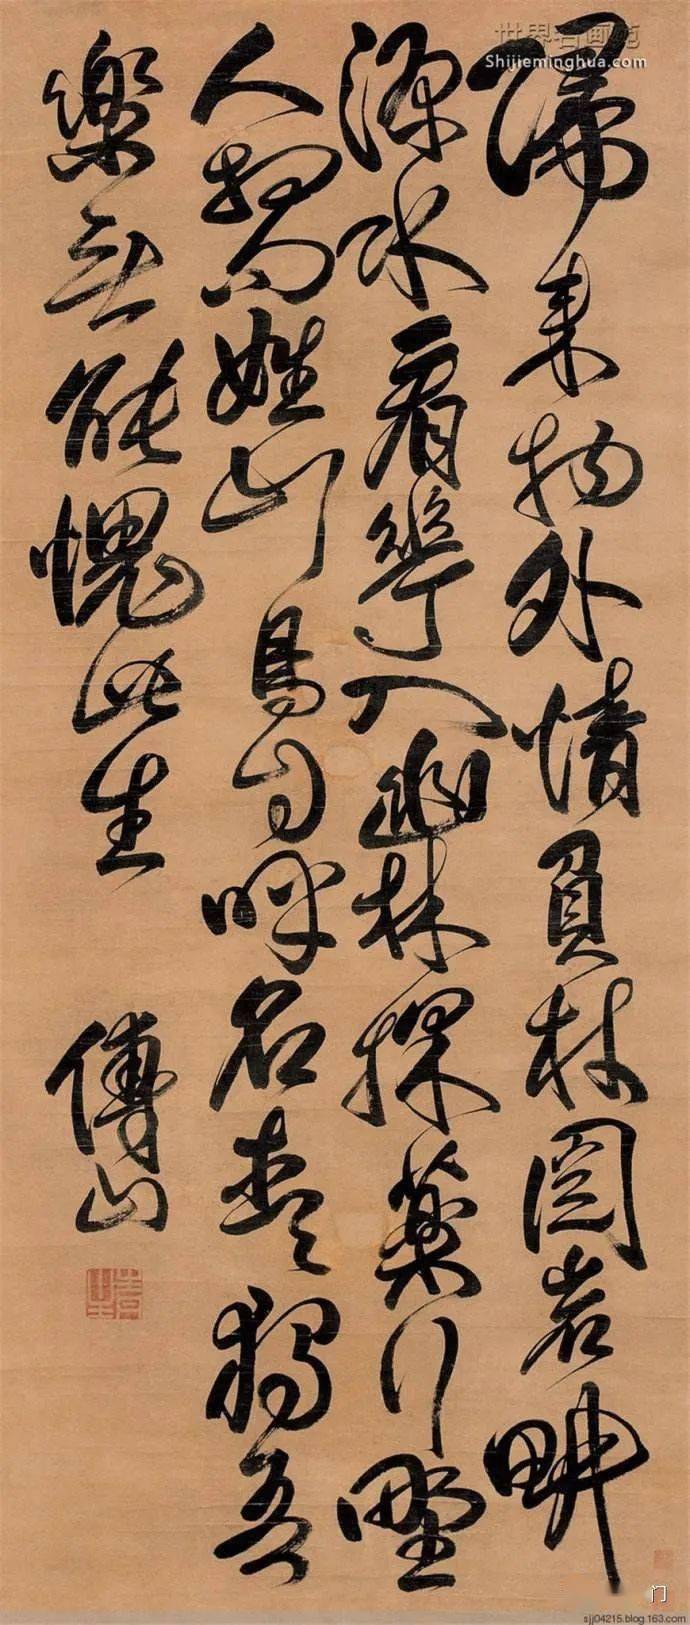 世界名画苑
Shijieminghua.com
归来物外情負杖閲岩畊
源水看花入幽林採薬行野
人相問姓山鳥自呼名去去独吾
樂無能愧此生
傅山
sjj04215.blog.163.com